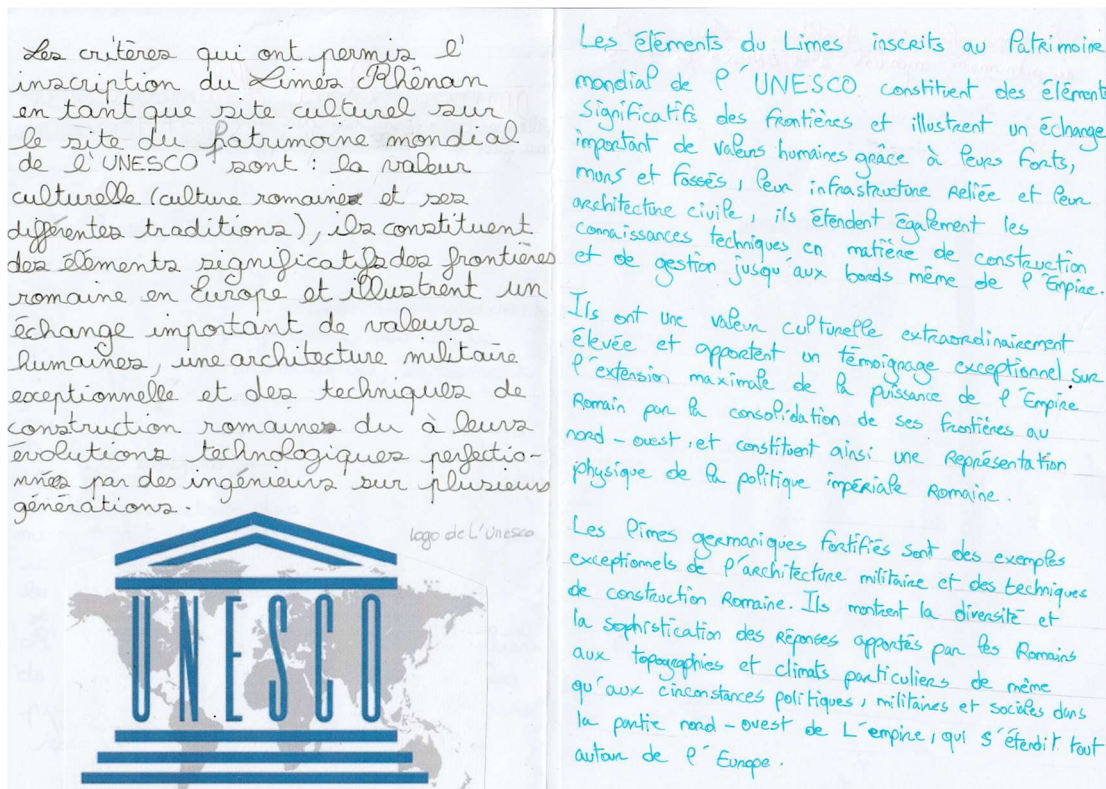 Les critères qui ont permis l'
inscription du Limes Rhénan
en tant que site culturel sur
le site du patrimoine mondial
de l'UNESCO sont : la valeur
culturelle (culture romaine et ses
différentes traditions), ils constituent
des éléments significatifs des frontières
romaine en Europe et illustrent un
échange important de valeurs
humaines, une architecture militaire
exceptionnelle et des techniques de
construction romaines du à leurs
évolutions technologiques perfectio-
nnées par des ingénieurs sur plusieurs
générations.
logo de L'Unesco
UNESCO
Les éléments du Limes inscrits au Patrimoine
mondial de l'UNESCO constituent des élément
significatifs des frontières et illustrent un échange
important de valeurs humaines grâce à leurs forts,
murs et fossés, leur infrastructure reliée et leur
architecture civile, ils étendent également les
connaissances techniques en matière de construction
et de gestion jusqu'aux bords même de l'Empire.
Ils ont une valeur culturelle extraordinairement
élevée et apportent un témoignage exceptionnel sur
l'extension maximale de la puissance de l'Empire
Romain par la consolidation de ses frontières au
nord-ouest, et constituent ainsi une représentation
physique de la politique impériale Romaine.
Les limes germaniques fortifiés sont des exemples
exceptionnels de l'architecture militaire et des techniques
de construction Romaine. Ils montrent la diversité et
la sophistication des réponses apportés par les Romains
aux topographies et climats particuliers de même
qu'aux circonstances politiques, militaires et sociales dans
la partie nord-ouest de L'empire, qui s'étendit tout
autour de l'Europe.